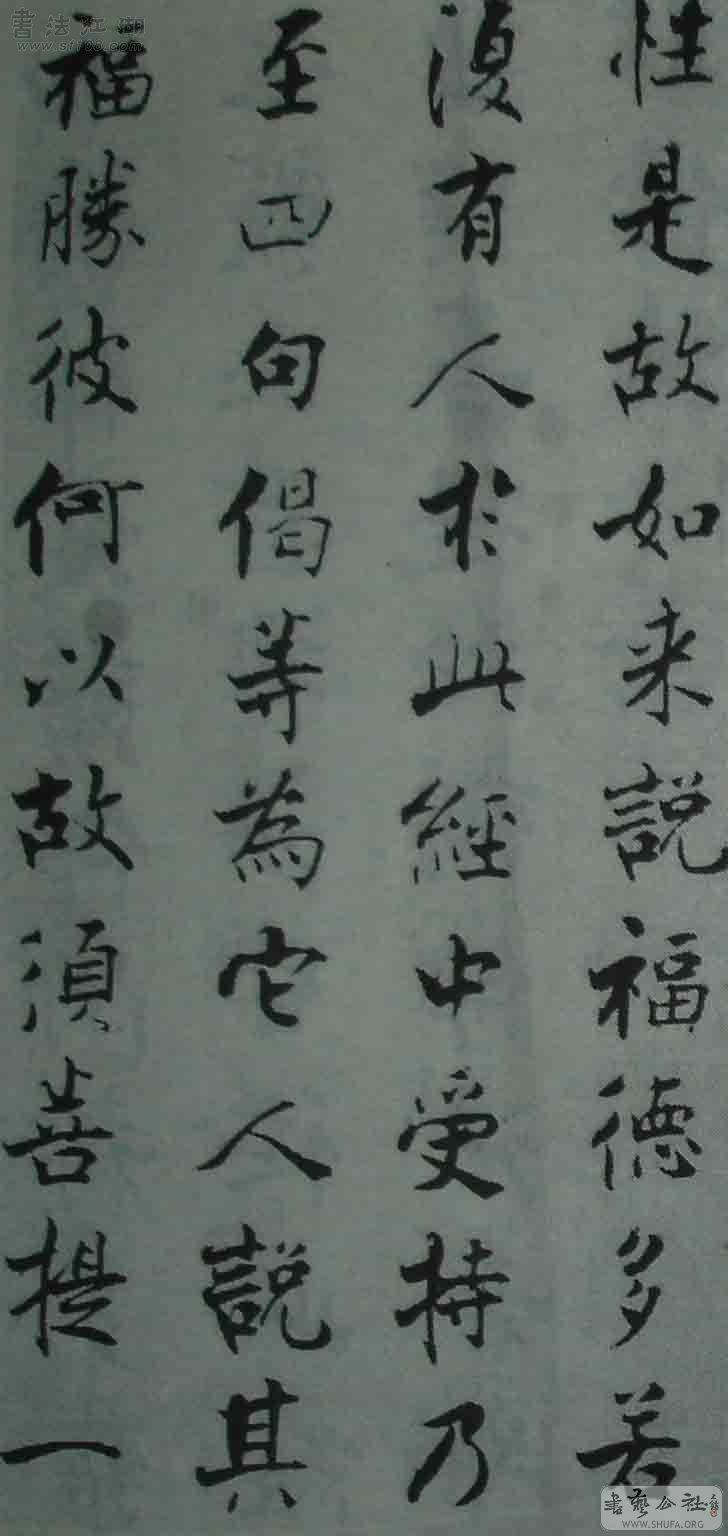 性是故如来説福德多若
復有人於此經中受持乃
至四句偈等為它人説其
福勝彼何以故須菩提一
書法江湖
www.sf108.com
書藝公社
WWW.SHUFA.ORG